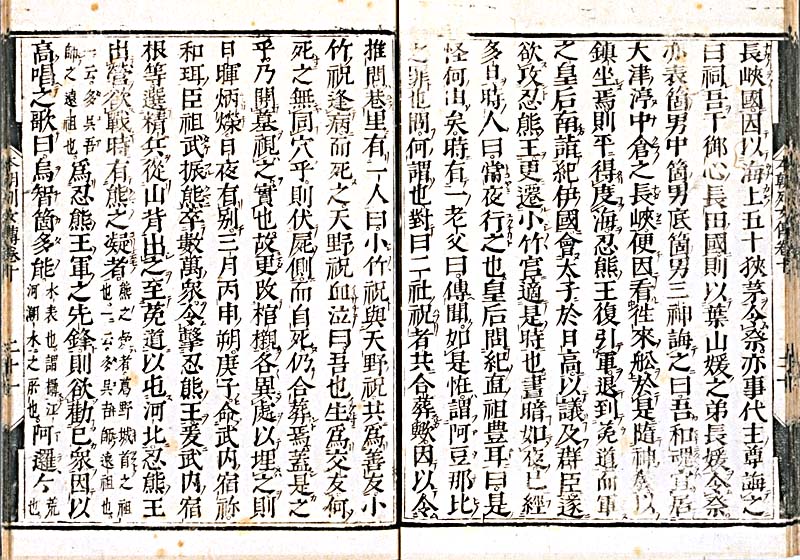 長峽國因以海上五十狹茅令祭亦事代主尊誨之
曰祠吾于御心長田國則以葉山媛之弟長媛令祭
亦表箇男中箇男底箇男三神誨之曰吾和魂宜居
大津渟中倉之長峽便因看往來舩於是隨神教以
鎮坐焉則平得度海忍熊王復引軍退到菟道而軍
之皇后南詣紀伊國會太子於日高以議及群臣遂
欲攻忍熊王更遷小竹宮適是時也晝暗如夜已經
多日時人曰當夜行之也皇后問紀直祖豊耳曰是
怪何由矣時有一老父曰傳聞如是怪謂阿豆那比
之罪也問何謂也對曰二社祝者共合葬歟因以令
推問巷里有一人曰小竹祝與天野祝共爲善友小
竹祝逢病而死之天野祝血泣曰吾也生爲交友何
死之無同穴乎則伏屍側而自死仍合葬焉蓋是之
乎乃開墓視之實也故更改棺櫬各異處以埋之則
日暉炳爃日夜有別三月丙申朔庚子命武内宿祢
和珥臣祖武振熊卒數萬衆令擊忍熊王爰武内宿
根等選精兵從山背出之至菟道以屯河北忍熊王
出營欲戰時有熊之凝者熊之凝者葛野城首之祖也一云多呉吉師之遠祖也
一云多呉吉師之遠祖也爲忍熊王軍之先鋒則欲勸己衆因以
高唱之歌曰烏智箇多能水表也謂攝江河湖水之所也阿邏々荒也
本朝列女傳卷十
二十